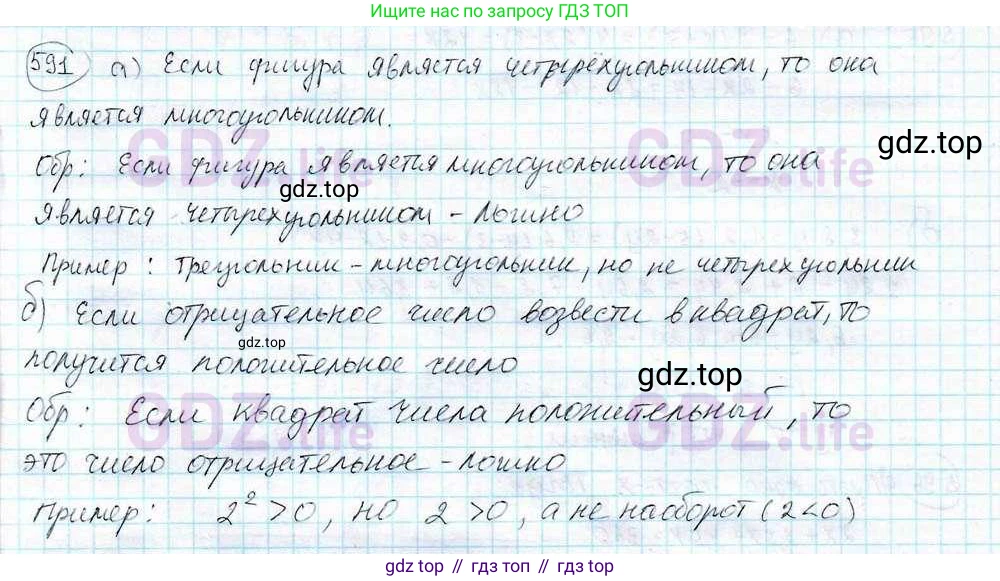 Ищите решение по запросу ГДЗ ТОП
591 а) Если фигура является четырёхугольником, то она
является многоугольником.
Обр: Если фигура является многоугольником, то она
является четырехугольником - ложно
Пример: треугольник - многоугольник, но не четырехугольник
б) Если отрицательное число возвести в квадрат, то
получится положительное число
Обр: Если квадрат числа положительный, то
это число отрицательное - ложно
Пример: 2² > 0, но 2 > 0, а не наоборот (2 < 0)
gdz.top
gdz.top
gdz.top
gdz.top
GDZ.life
GDZ.life
GDZ.life
GDZ.life
gdz.top // гдз топ // гдз.топ